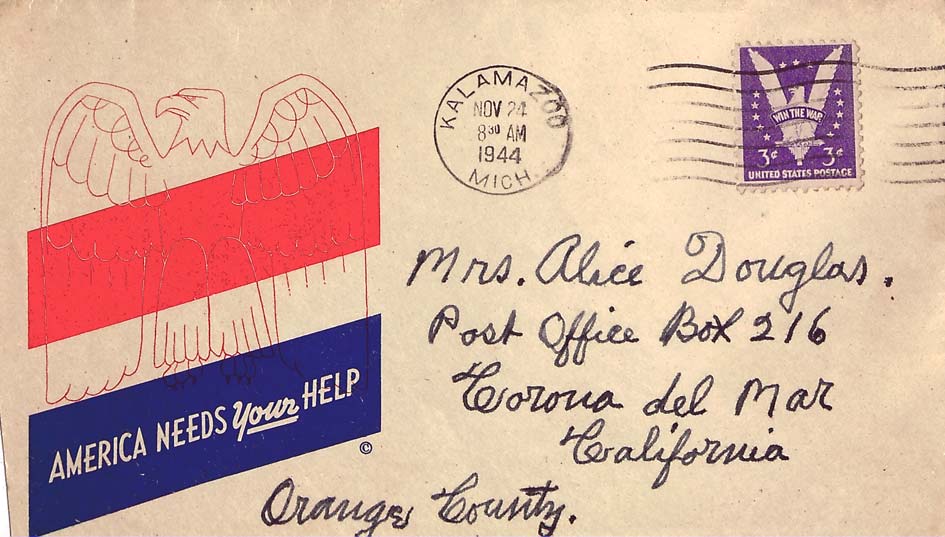 KALAMAZOO
NOV 24
8³⁰ AM
1944
MICH.
WIN THE WAR
3¢ 3¢
UNITED STATES POSTAGE
Mrs. Alice Douglas.
Post Office Box 216
Corona del Mar
California
Orange County.
AMERICA NEEDS Your HELP
©